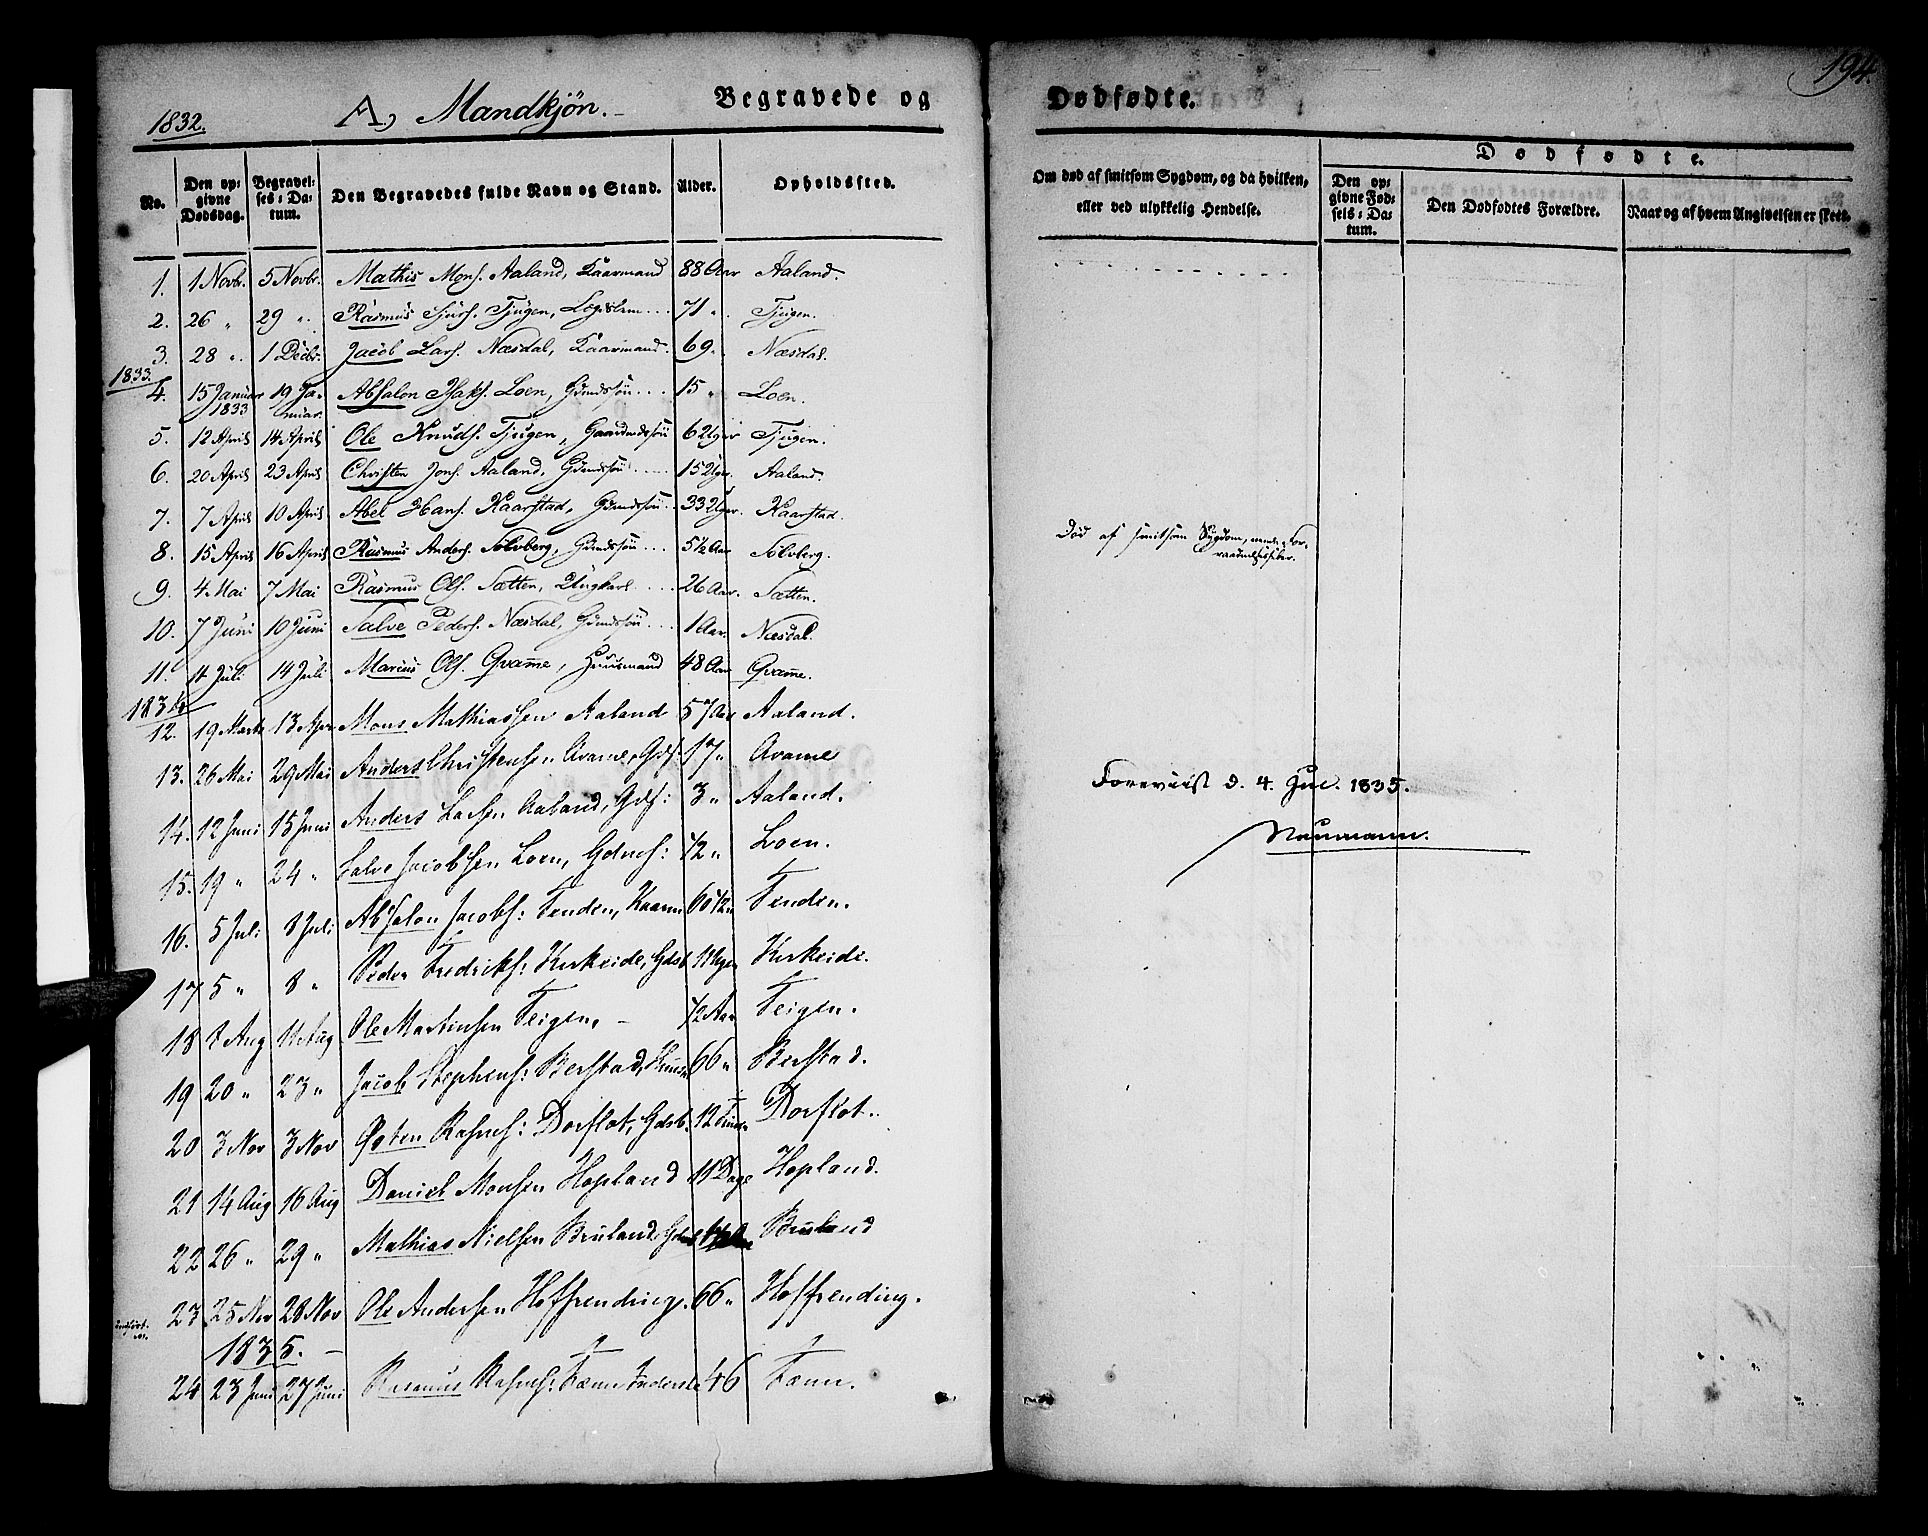 194.
1832. A, Mandkjön. Begravede og Dødfødte.
No. Den opgivne Dødsdag. Begravelses-Datum. Den Begravedes fulde Navn og Stand. Alder. Opholdssted.
Om død af smitsom Sygdom, og da hvilken, eller ved ulykkelig Hendelse.
Dødfødte.
Den opgivne Fødsels-Datum. Den Dødfødtes Forældre. Naar og af hvem Angivelsen er skeet.
1. 1 Novbr. 5 Novbr. Mathis Mons. Aaland, Kaarmand 88 Aar Aaland.
2. 26 " 29 " Rasmus Sjurs. Tjugen, 71 " Tjugen.
3. 28 " 1 Decbr. Jacob Lars. Næsdal, Kaarmand. 69 " Næsdal.
1833.
4. 15 Januar 1833 19 Januar. Absalon Isaks. Loen, Gmdssøn 15 " Loen.
5. 12 April 14 April Ole Knuds. Tjugen, Gaardmdssøn 6 Uger Tjugen.
6. 20 April 23 April Christen Jons. Aaland, Gmdssøn 15 Uger. Aaland.
7. 7 April 10 April Abel Hans. Kaarstad, Gmdssøn 33 Uger. Kaarstad.
8. 15 April 16 April Rasmus Anders. Sølvberg, Gmdssøn 5½ Aar Sølvberg. Død af smitsom Sygdom,
9. 4 Mai 7 Mai Rasmus Ols. Sætten, Ungkarl 26 Aar. Sætten.
10. 7 Juni 10 Juni Salve Peders. Næsdal, Gmdssøn 1 Aar. Næsdal.
11. 11 Juli 14 Juli Marius Ols. Qvamme, Huusmand 48 Aar Qvamme.
1834
12. 19 Marts 13 Apr Mons Mathiassen Aaland 57 Aar Aaland.
13. 26 Mai 29 Mai Anders Christensen Qvame, Gds. 17 " Qvame
14. 12 Juni 15 Juni Anders Lassen Aaland, Gds: 3 " Aaland.
15. 19 " 24 " Salve Jacobsen Loen, Gdms: ½ " Loen.
16. 5 Juli 8 Juli Absalon Jacobs: Tenden, Kaarm 60½ " Tenden.
17 5 " 8 " Peder Fredriks: Kirkeide, Gdsb 11 Uger Kirkeide.
18 7 Aug 11 Aug Ole Martinsen Teigen. - ½ Aar Teigen.
19 20 " 23 " Jacob Stephens: Berstad, Huusm 66 " Berstad.
20 3 Nov 3 Nov Østen Rasms: Dorflot, Gdsb. 12 Timer Dorflot.
21 14 Aug 16 Aug Daniel Monsen Hopland 11 Dage Hopland.
22 26 " 29 " Mathias Nielsen Bruland, Bruland
23 25 Nov 28 Nov Ole Andersen Hoffrending. 66 " Hoffrending.
1835. -
24 23 Juni 27 Juni Rasmus Rasms: Tænn 46 Tænn.
Foreviist d. 4. Jul. 1835.
Naumann.